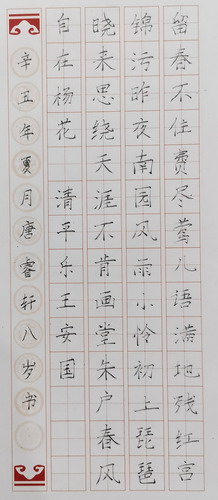 留春不住费尽莺儿语满地残红宫
锦污昨夜南园风雨小怜初上琵琶
晓来思绕天涯不肯画堂朱户春风
自在杨花 清平乐王安国
辛丑年夏月唐睿轩八岁书